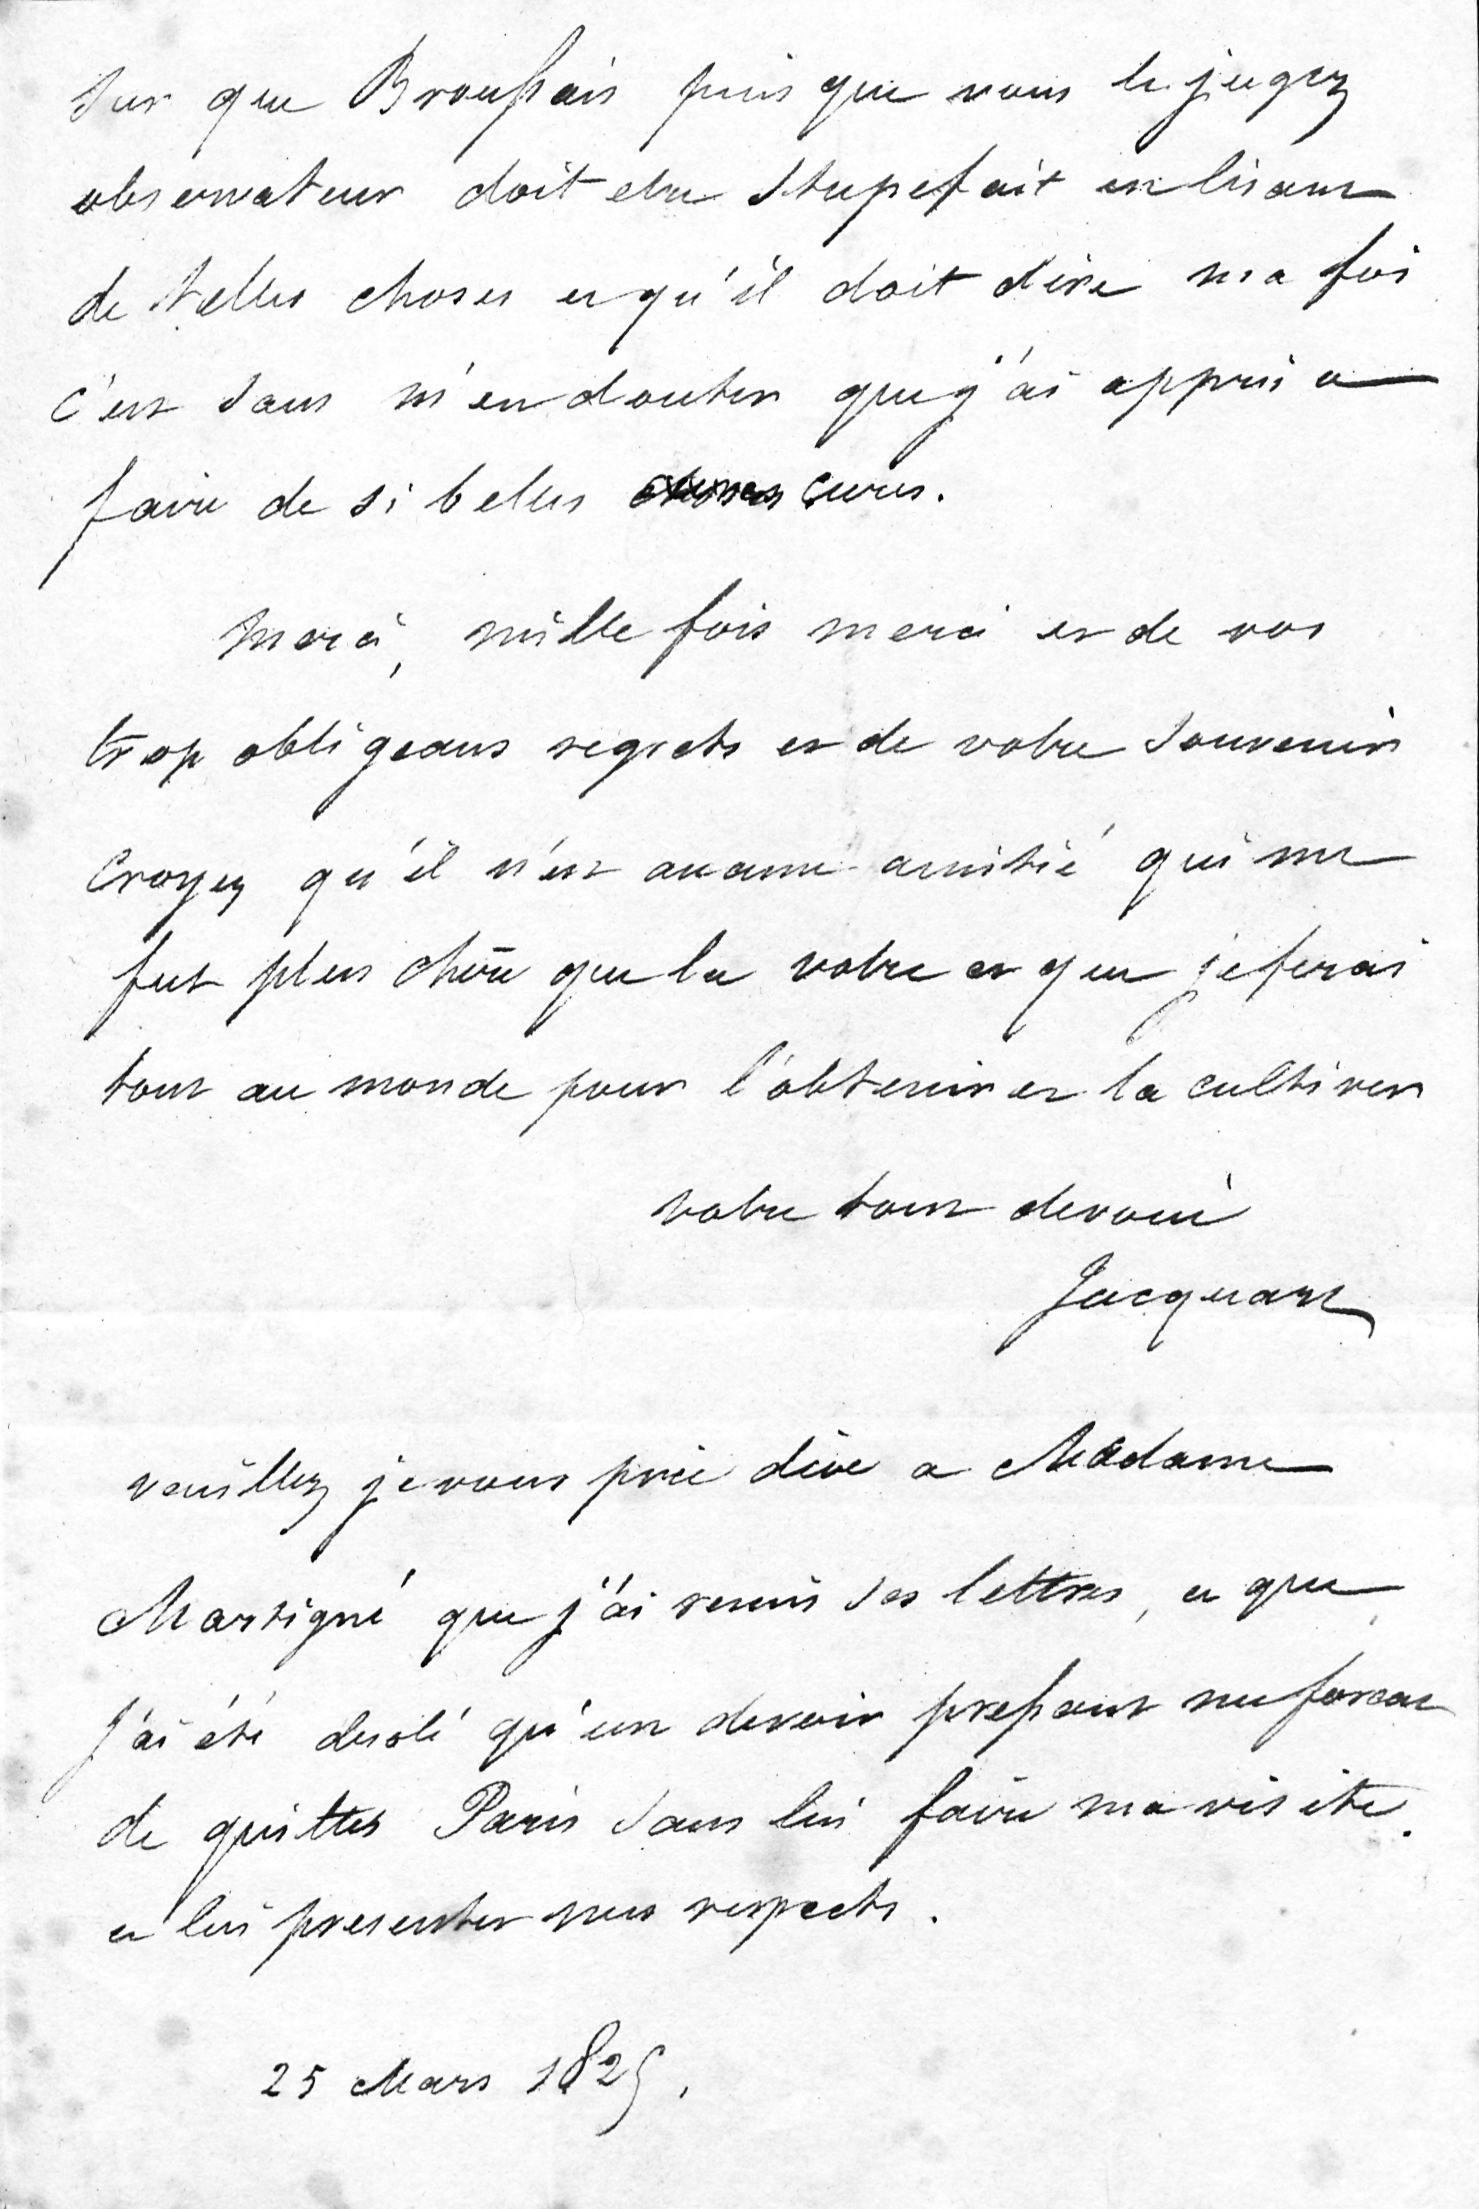 sur que Broussais puis que vous le jugez
observateur doit etre stupefait en lisant
de telles choses et qu'il doit dire ma foi
c'est sans m'en douter que j'ai appris a
faire de si belles cures.
Merci, mille fois merci et de vos
trop obligeans regrets et de votre souvenir
Croyez qu'il n'est aucune amitié qui me
fut plus chère que la votre et que je ferai
tout au monde pour l'obtenir et la cultiver
votre tout devoué
Jacquart
veuillez je vous prie dire a Madame
Martigné que j'ai remis ses lettres, et que
j'ai été desolé qu'un devoir pressant me forcat
de quitter Paris sans lui faire ma visite.
et lui presenter mes respects.
25 Mars 1825.